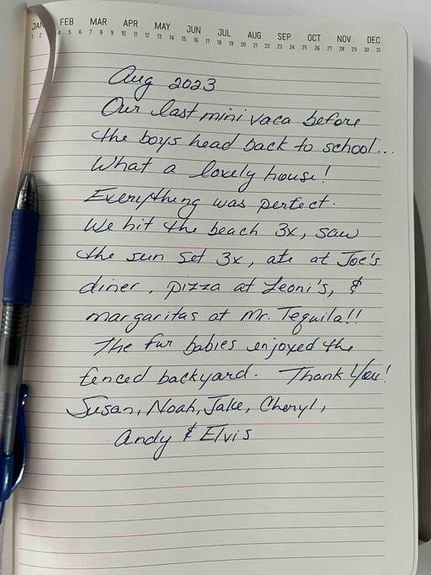 JAN FEB MAR APR MAY JUN JUL AUG SEP OCT NOV DEC
Aug 2023
Our last mini vaca before
the boys head back to school...
What a lovely house!
Everything was perfect.
We hit the beach 3x, saw
the sun set 3x, ate at Joe's
diner, pizza at Leoni's, &
margaritas at Mr. Tequila!!
The fur babies enjoyed the
fenced backyard. Thank You!
Susan, Noah, Jake, Cheryl,
Andy & Elvis